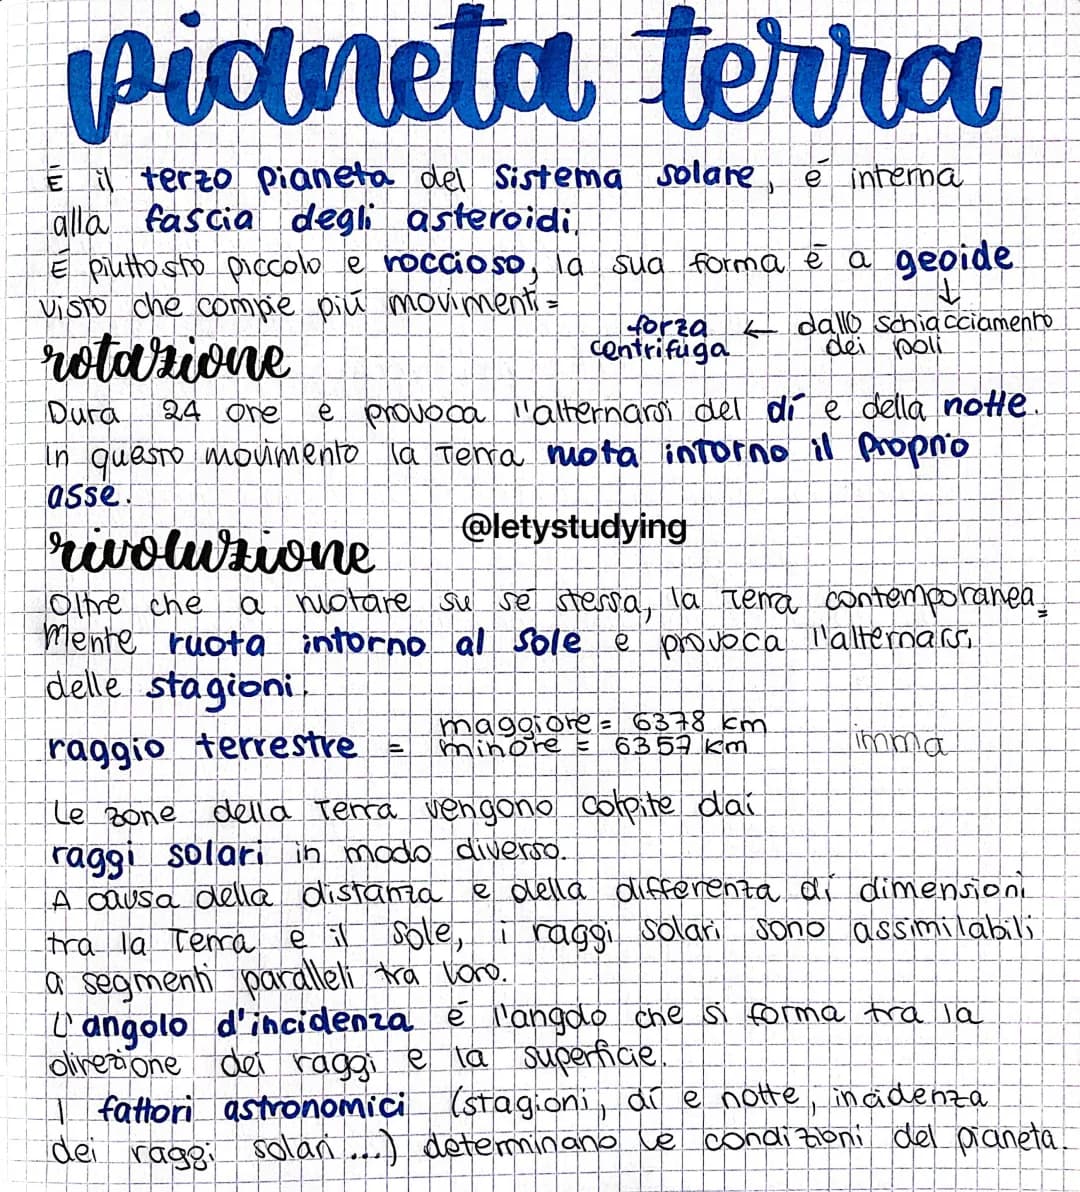 pianeta terra
È il terzo pianeta del Sistema solare, è interna
alla fascia degli asteroidi.
È piuttosto piccolo e roccioso, la sua forma è a geoide
visto che compie più movimenti =
↓
forza ← dallo schiacciamento
centrifuga dei poli
rotazione
Dura 24 ore e provoca l'alternarsi del dí e della notte.
In questo movimento la Terra ruota intorno il proprio
asse.
@letystudying
rivoluzione
Oltre che a ruotare su sé stessa, la Terra contemporanea=
mente ruota intorno al Sole e provoca l'alternarsi
delle stagioni.
raggio terrestre = maggiore = 6378 km
minore = 6357 km
imma
Le zone della Terra vengono colpite dai
raggi solari in modo diverso.
A causa della distanza e della differenza di dimensioni
tra la Terra e il Sole, i raggi solari sono assimilabili
a segmenti paralleli tra loro.
L'angolo d'incidenza è l'angolo che si forma tra la
direzione dei raggi e la superficie.
I fattori astronomici (stagioni, dí e notte, incidenza
dei raggi solari ...) determinano le condizioni del pianeta.